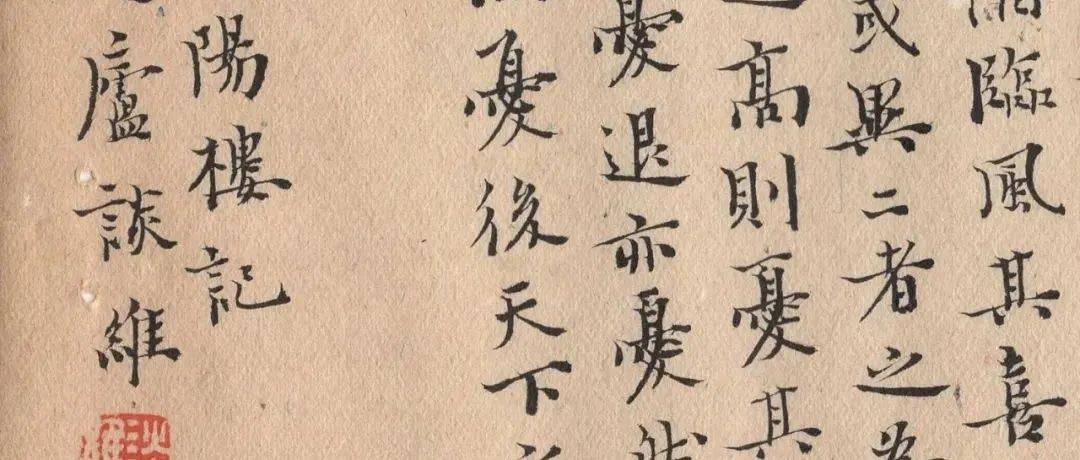 臨風其喜
或異二者之為
高則憂其
憂退亦憂然
憂後天下
陽樓記
廬談維